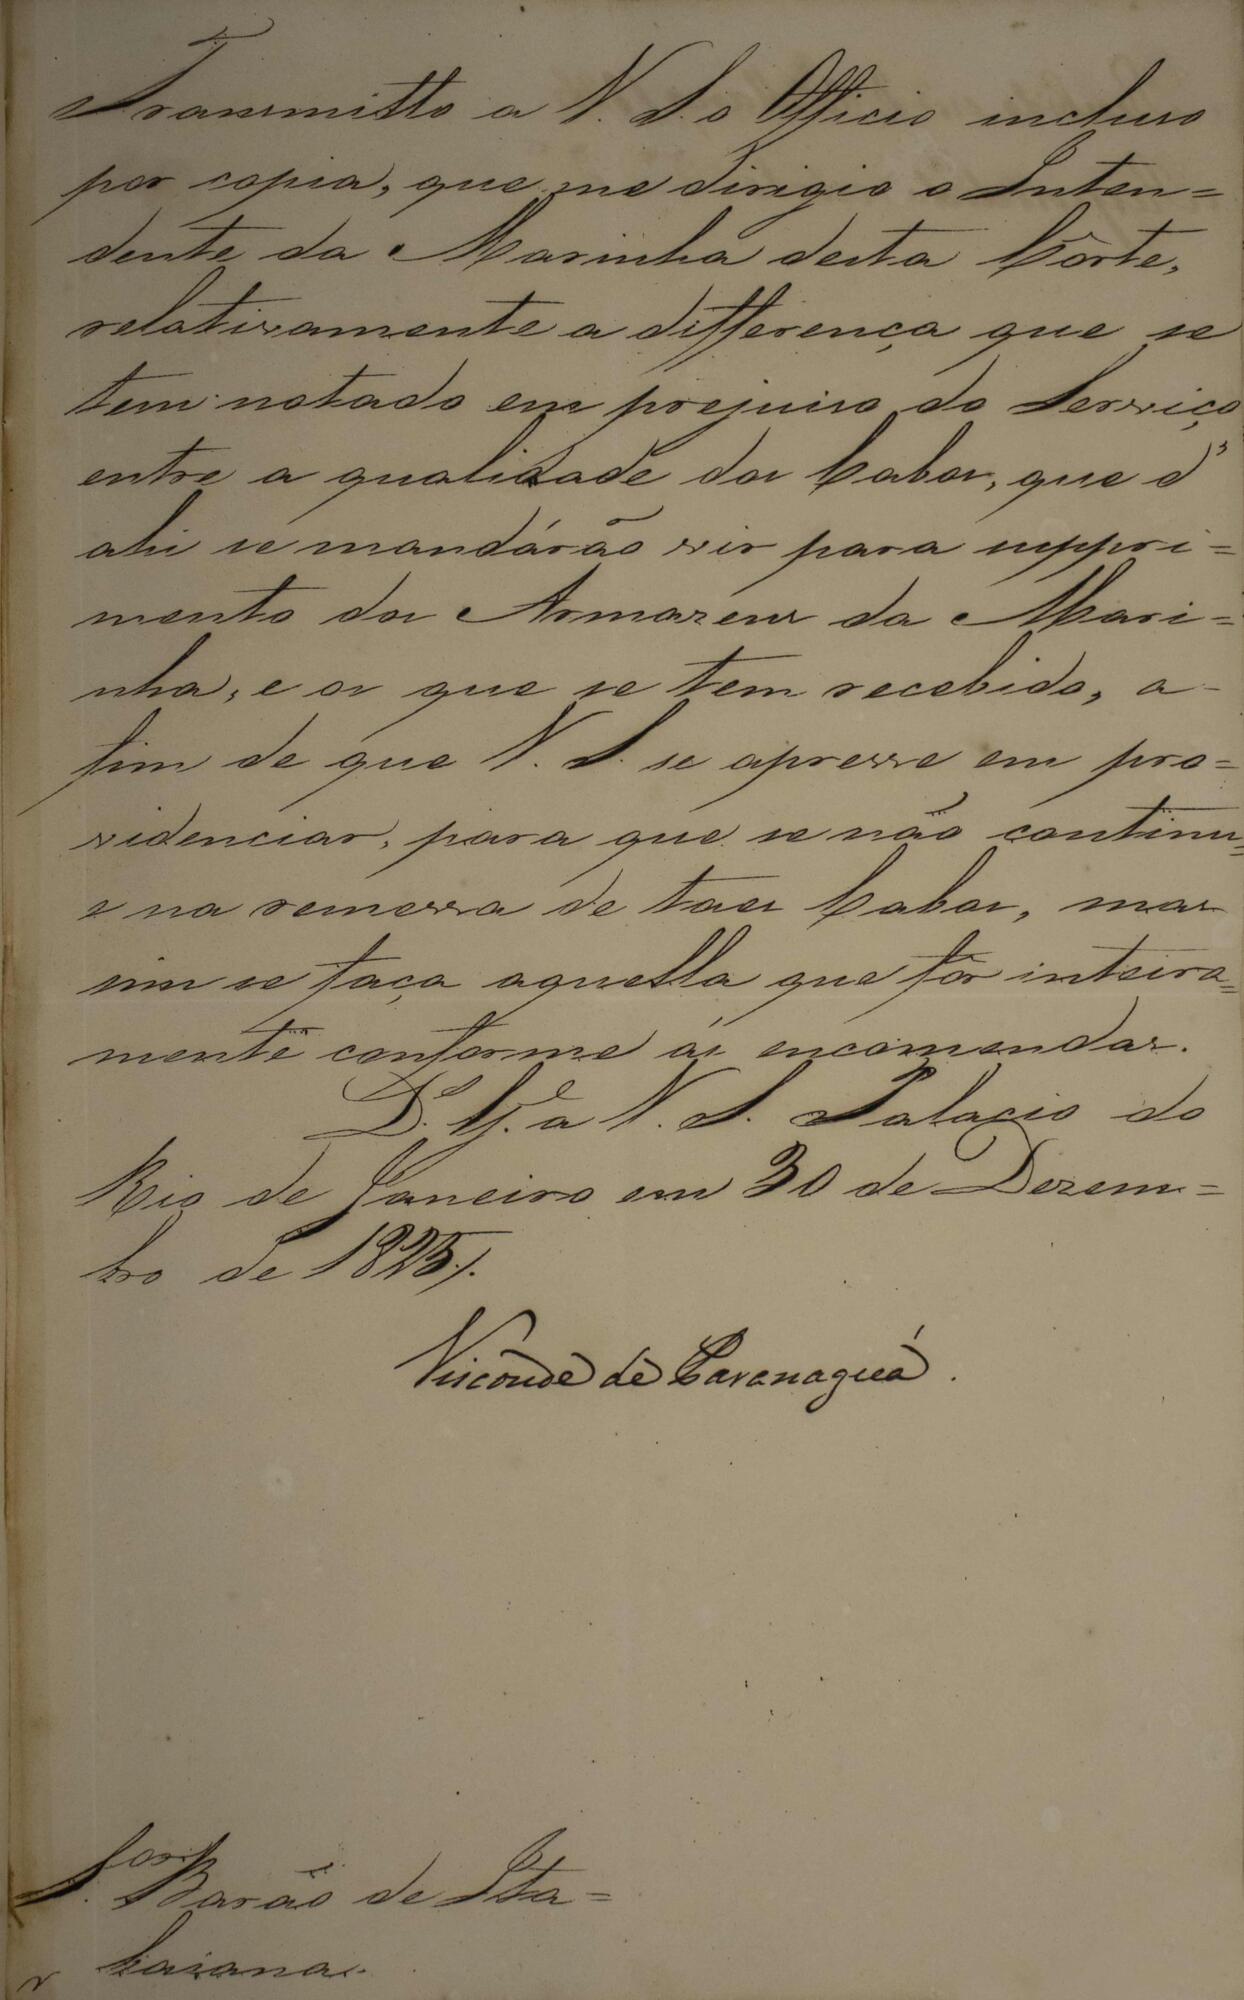 Transmitto a V. S. o Officio incluso
por copia, que me dirigio o Inten=
dente da Marinha desta Côrte,
relativamente a differença que se
tem notado em prejuiso do Serviço
entre a qualidade dos Cabos, que d'
ahi se mandárão vir para suppri=
mento dos Armazens da Mari=
nha, e os que se tem recebido, a-
fim de que V. S. se apresse em pro=
videnciar, para que se não continu=
e na remessa de taes Cabos, mas
sim se faça aquella que fôr inteira=
mente conforme ás encomendas.
D.s G.e a V. S. Palacio do
Rio de Janeiro em 30 de Dezem=
bro de 1825./.
Visconde de Paranaguá.
Barão de Ita=
baiana.